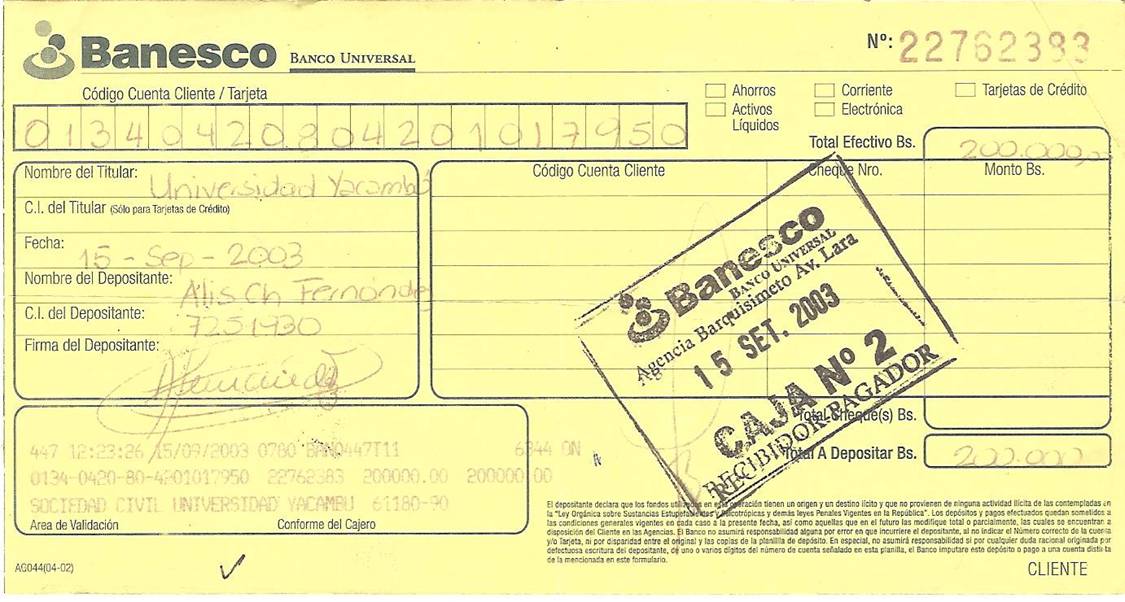 Banesco BANCO UNIVERSAL
Nº: 22762383
Código Cuenta Cliente / Tarjeta
Ahorros Corriente Tarjetas de Crédito
Activos Líquidos Electrónica
01340420804201017950
Total Efectivo Bs. 200.000,
Nombre del Titular: Universidad Yacambú
Código Cuenta Cliente Cheque Nro. Monto Bs.
C.I. del Titular (Sólo para Tarjetas de Crédito)
Fecha: 15 - Sep - 2003
Nombre del Depositante: Alis Ch Fernandez
C.I. del Depositante: 7251930
Firma del Depositante:
Banesco
BANCO UNIVERSAL
Agencia Barquisimeto Av. Lara
15 SET. 2003
CAJA Nº 2
RECIBIDOR-PAGADOR
Total Cheque(s) Bs.
Total A Depositar Bs. 200.000
447 12:23:26 15/09/2003 0780 BAN0447T11 6844 ON
0134-0420-80-4201017950 22762383 200000.00 200000.00
SOCIEDAD CIVIL UNIVERSIDAD YACAMBU 61180-90
Area de Validación Conforme del Cajero
El depositante declara que los fondos utilizados en esta operación tienen un origen y un destino lícito y que no provienen de ninguna actividad ilícita de las contempladas en
la "Ley Orgánica sobre Sustancias Estupefacientes y Psicotrópicas y demás leyes Penales Vigentes en la República". Los depósitos y pagos efectuados quedan sometidos a
las condiciones generales vigentes en cada caso a la presente fecha, así como aquellas que en el futuro las modifique total o parcialmente, las cuales se encuentran a
disposición del Cliente en las Agencias. El Banco no asumirá responsabilidad alguna por error en que incurriere el depositante, al no indicar el Número correcto de la cuenta
y/o Tarjeta, ni por disparidad entre el original y las copias de la planilla de depósito. En especial, no asumirá responsabilidad si por cualquier duda racional originada por
defectuosa escritura del depositante, de uno o varios dígitos del número de cuenta señalado en esta planilla, el Banco imputare este depósito o pago a una cuenta distinta
de la mencionada en este formulario.
AG044(04-02)
CLIENTE